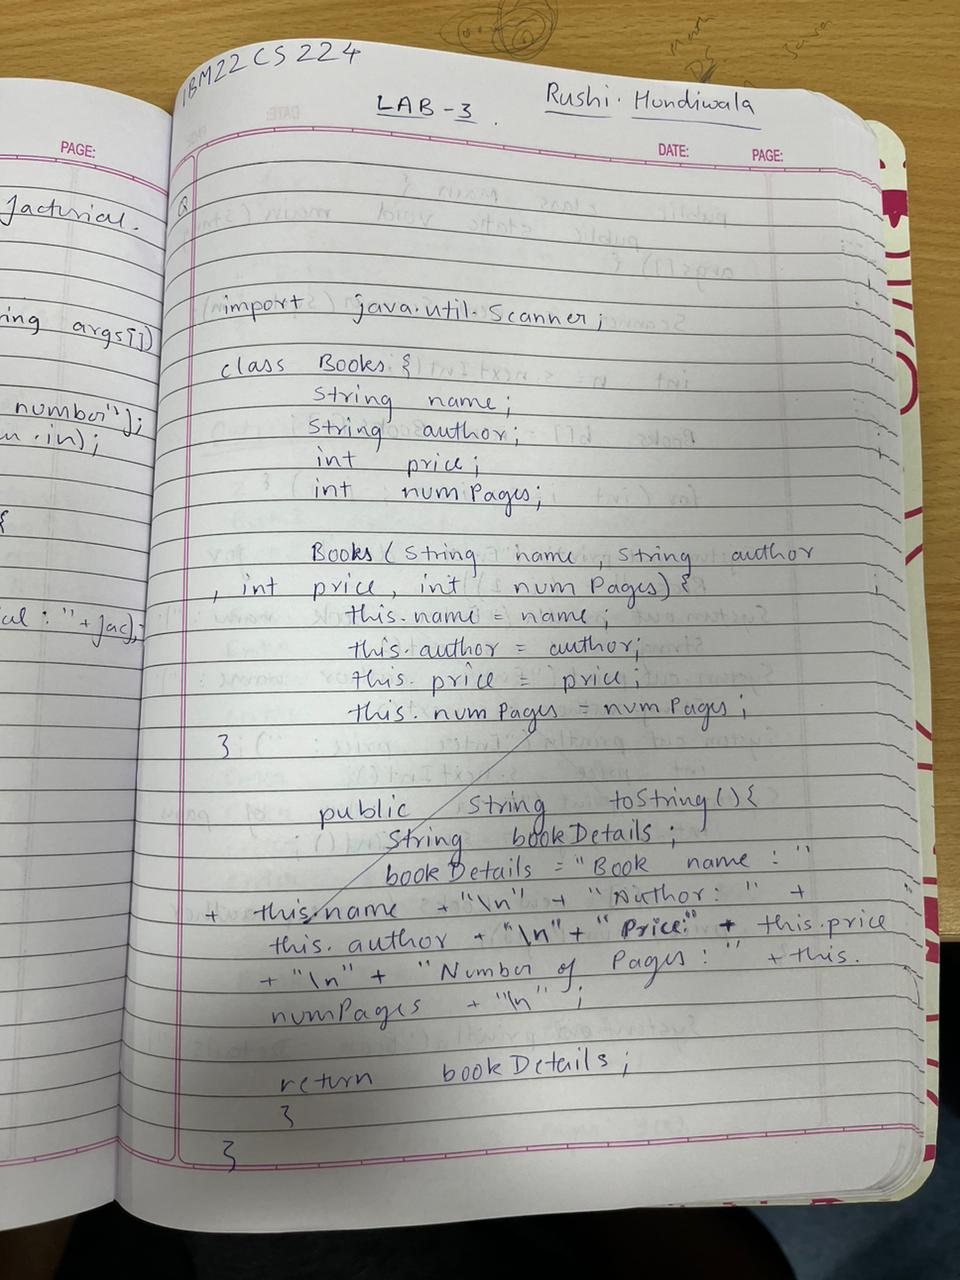 PAGE:
factorial.
ring args[])
number");
n.in);
{
ial : "+fac);
1BM22CS224
LAB-3.
Rushi. Hundiwala
DATE: PAGE:
Q
import java.util.Scanner;
class Books {
String name;
String author;
int price;
int numPages;
Books (String name, String author
, int price, int numPages) {
this.name = name;
this.author = author;
this.price = price;
this.numPages = numPages;
}
public String toString(){
String bookDetails;
bookDetails = "Book name : "
+ this.name + "\n" + "Author: " +
this.author + "\n" + "Price:" + this.price
+ "\n" + "Number of Pages : " + this.
numPages + "\n" ;
return bookDetails;
}
}